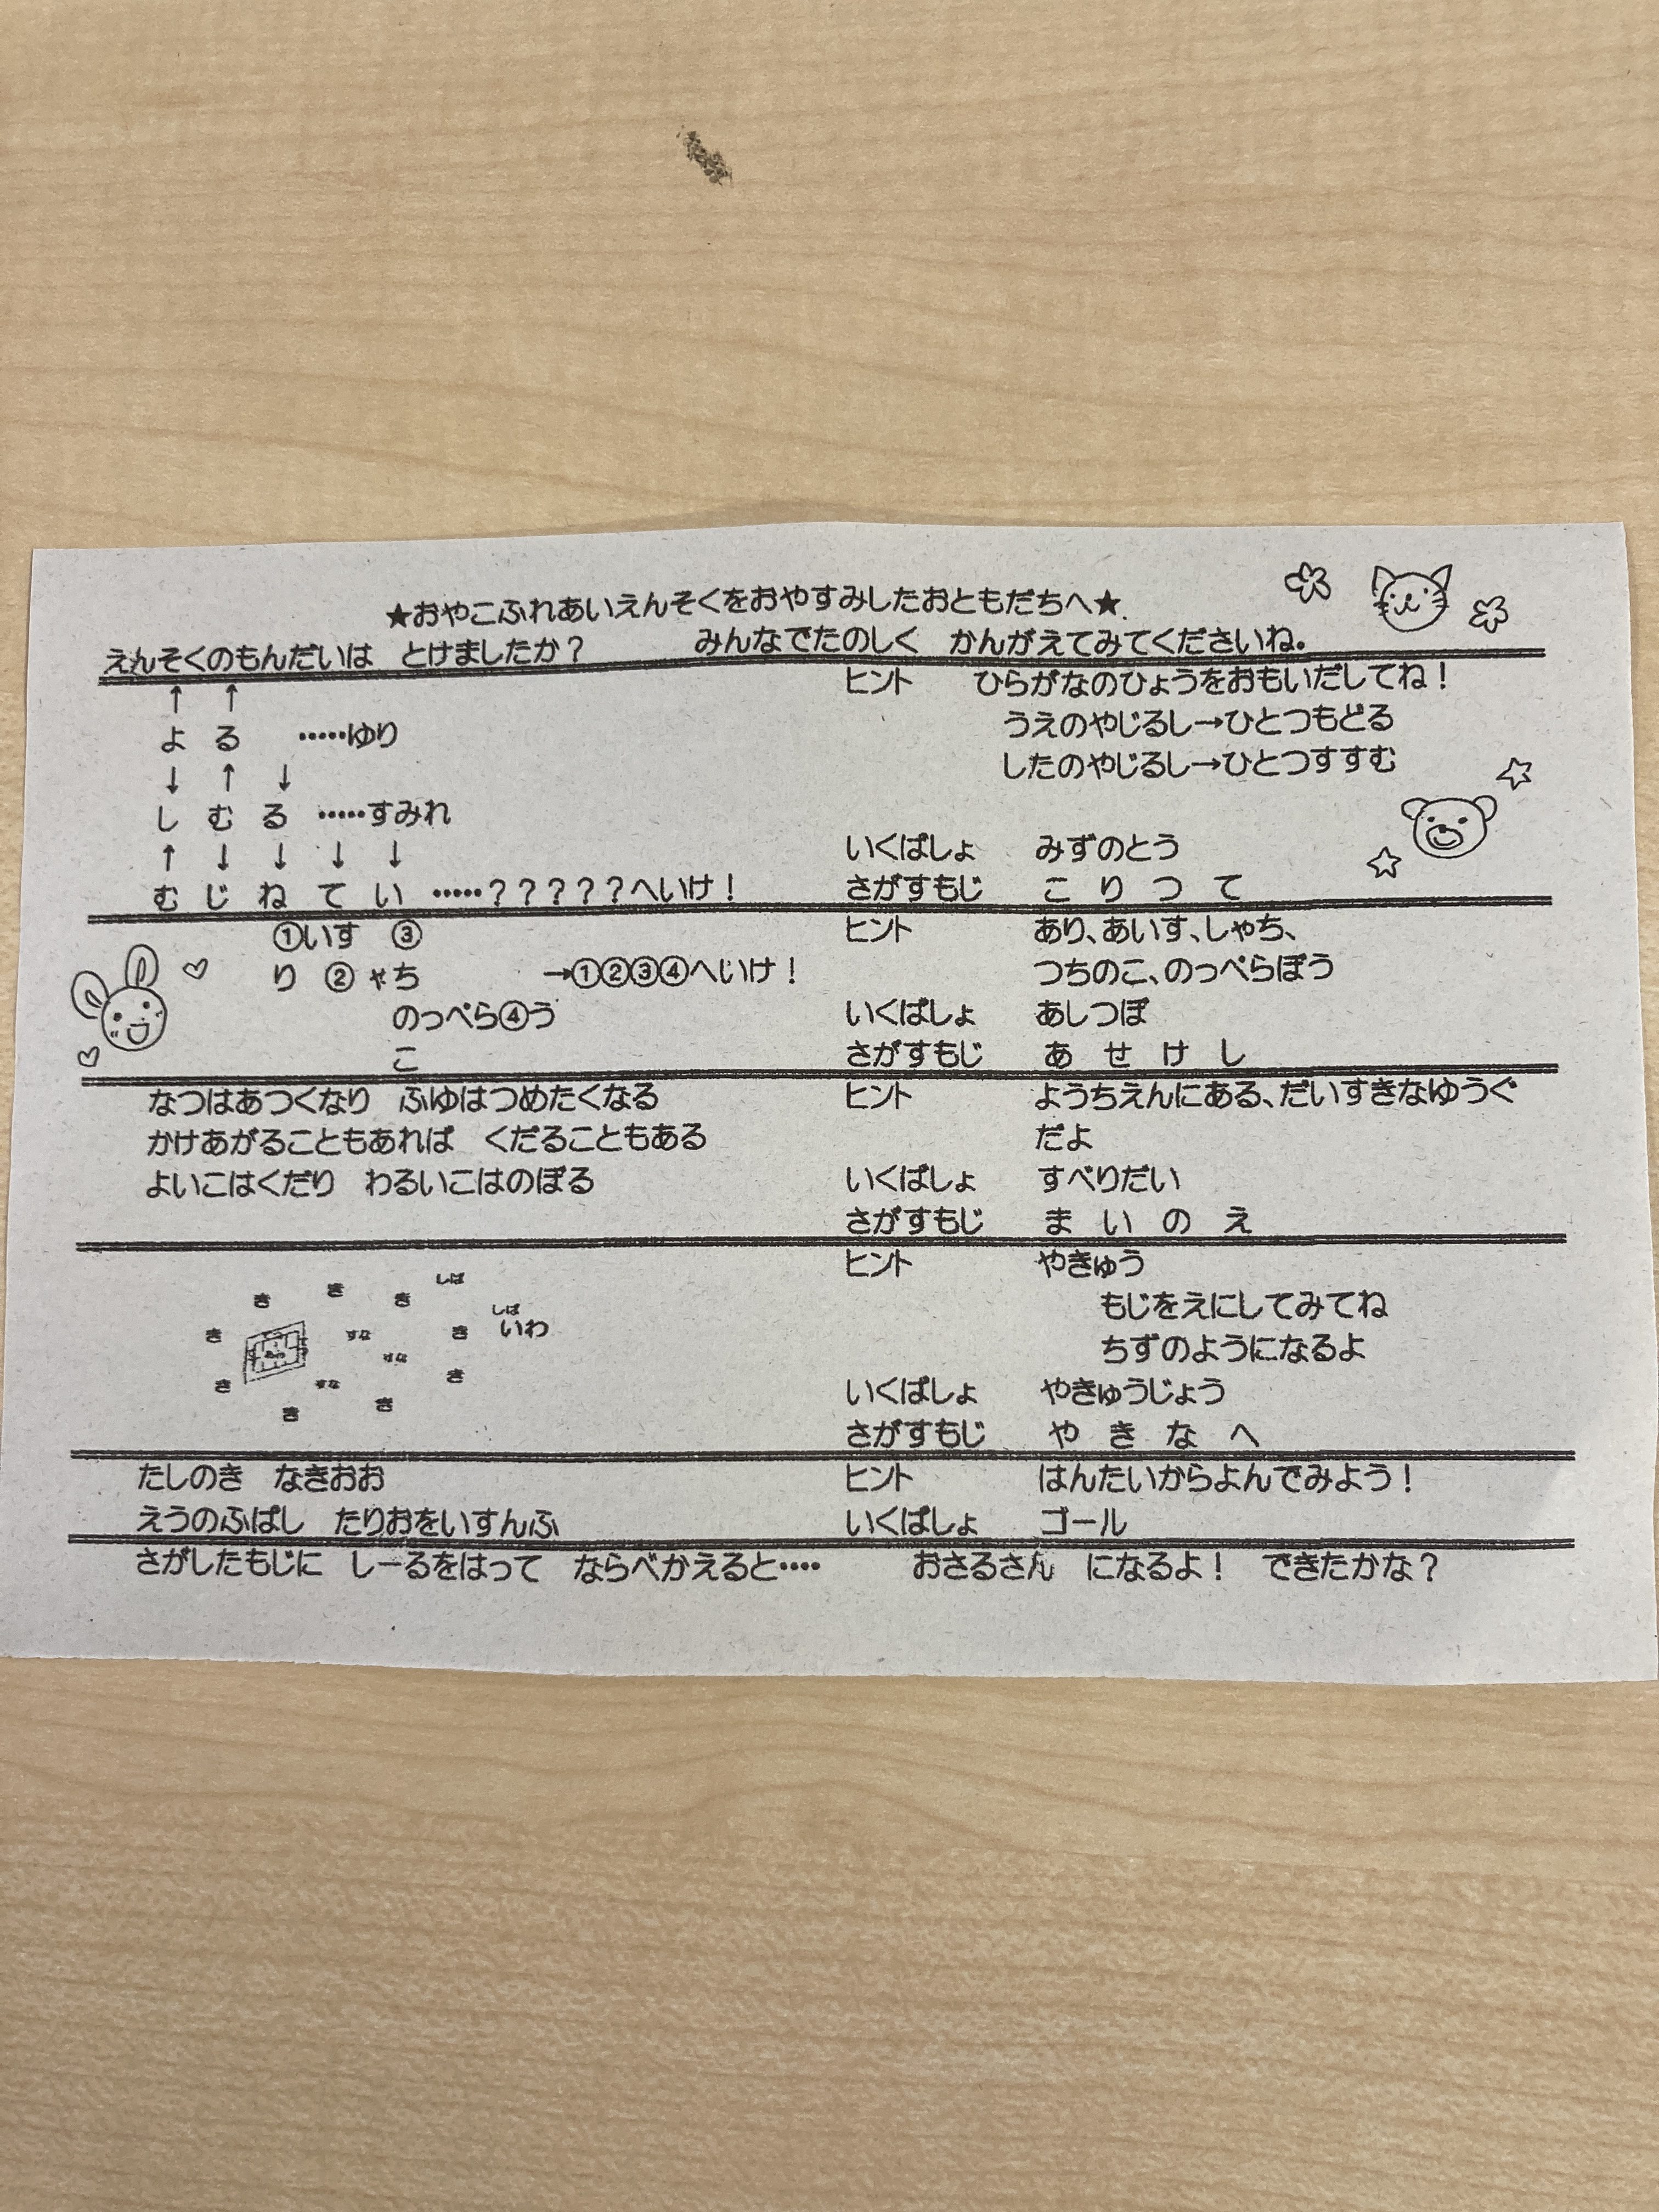 ★おやこふれあいえんそくをおやすみしたおともだちへ★
えんそくのもんだいは　とけましたか？　みんなでたのしく　かんがえてみてくださいね。
↑　↑
よ　る　……ゆり
↓　↑　↓
し　む　る　……すみれ
↑　↓　↓　↓　↓
む　じ　ね　て　い　……？？？？？へいけ！
ヒント　ひらがなのひょうをおもいだしてね！
うえのやじるし→ひとつもどる
したのやじるし→ひとつすすむ
いくばしょ　みずのとう
さがすもじ　こ　り　つ　て
①いす　③
り　②　ゃち　→①②③④へいけ！
のっぺら④う
こ
ヒント　あり、あいす、しゃち、
つちのこ、のっぺらぼう
いくばしょ　あしつぼ
さがすもじ　あ　せ　け　し
なつはあつくなり　ふゆはつめたくなる
かけあがることもあれば　くだることもある
よいこはくだり　わるいこはのぼる
ヒント　ようちえんにある、だいすきなゆうぐ
だよ
いくばしょ　すべりだい
さがすもじ　ま　い　の　え
しば
き　き　き　しば
き　すな　き　いわ
すな
き　すな　き
き　き
ヒント　やきゅう
もじをえにしてみてね
ちずのようになるよ
いくばしょ　やきゅうじょう
さがすもじ　や　き　な　へ
たしのき　なきおお
えうのふばし　たりおをいすんふ
ヒント　はんたいからよんでみよう！
いくばしょ　ゴール
さがしたもじに　しーるをはって　ならべかえると‥‥　おさるさん　になるよ！　できたかな？